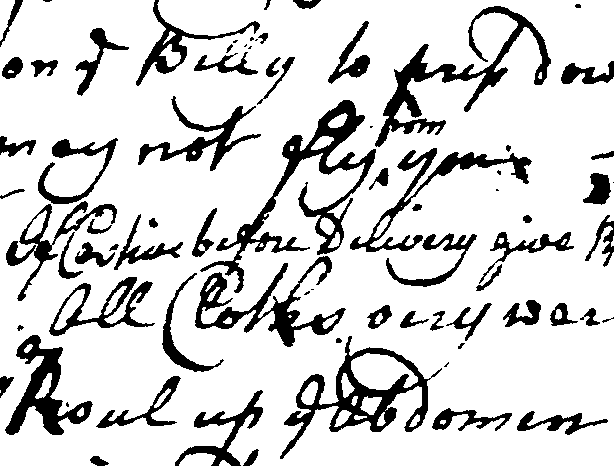 on ye Billy to press dow
may not fly from you
Effective before Delivery give
All Cloths very war
Roul up ye Abdomen